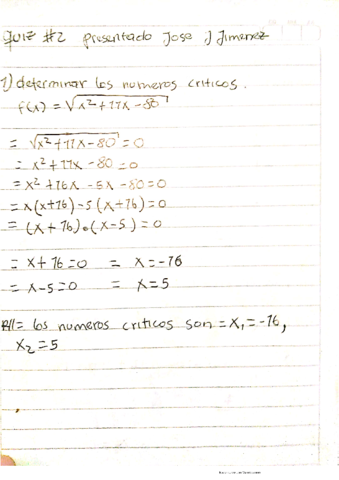 QUIZ #2 presentado Jose J Jimenez
1) determinar los numeros criticos.
f(x) = √x²+11x-80
= √x²+11x-80 = 0
= x²+11x-80 = 0
= x²+16x -5x -80=0
= x(x+16)-5(x+16)=0
= (x+16)•(x-5)=0
= x+16=0 = x=-16
= x-5=0 = x=5
R// = los numeros criticos son = x₁=-16,
x₂=5